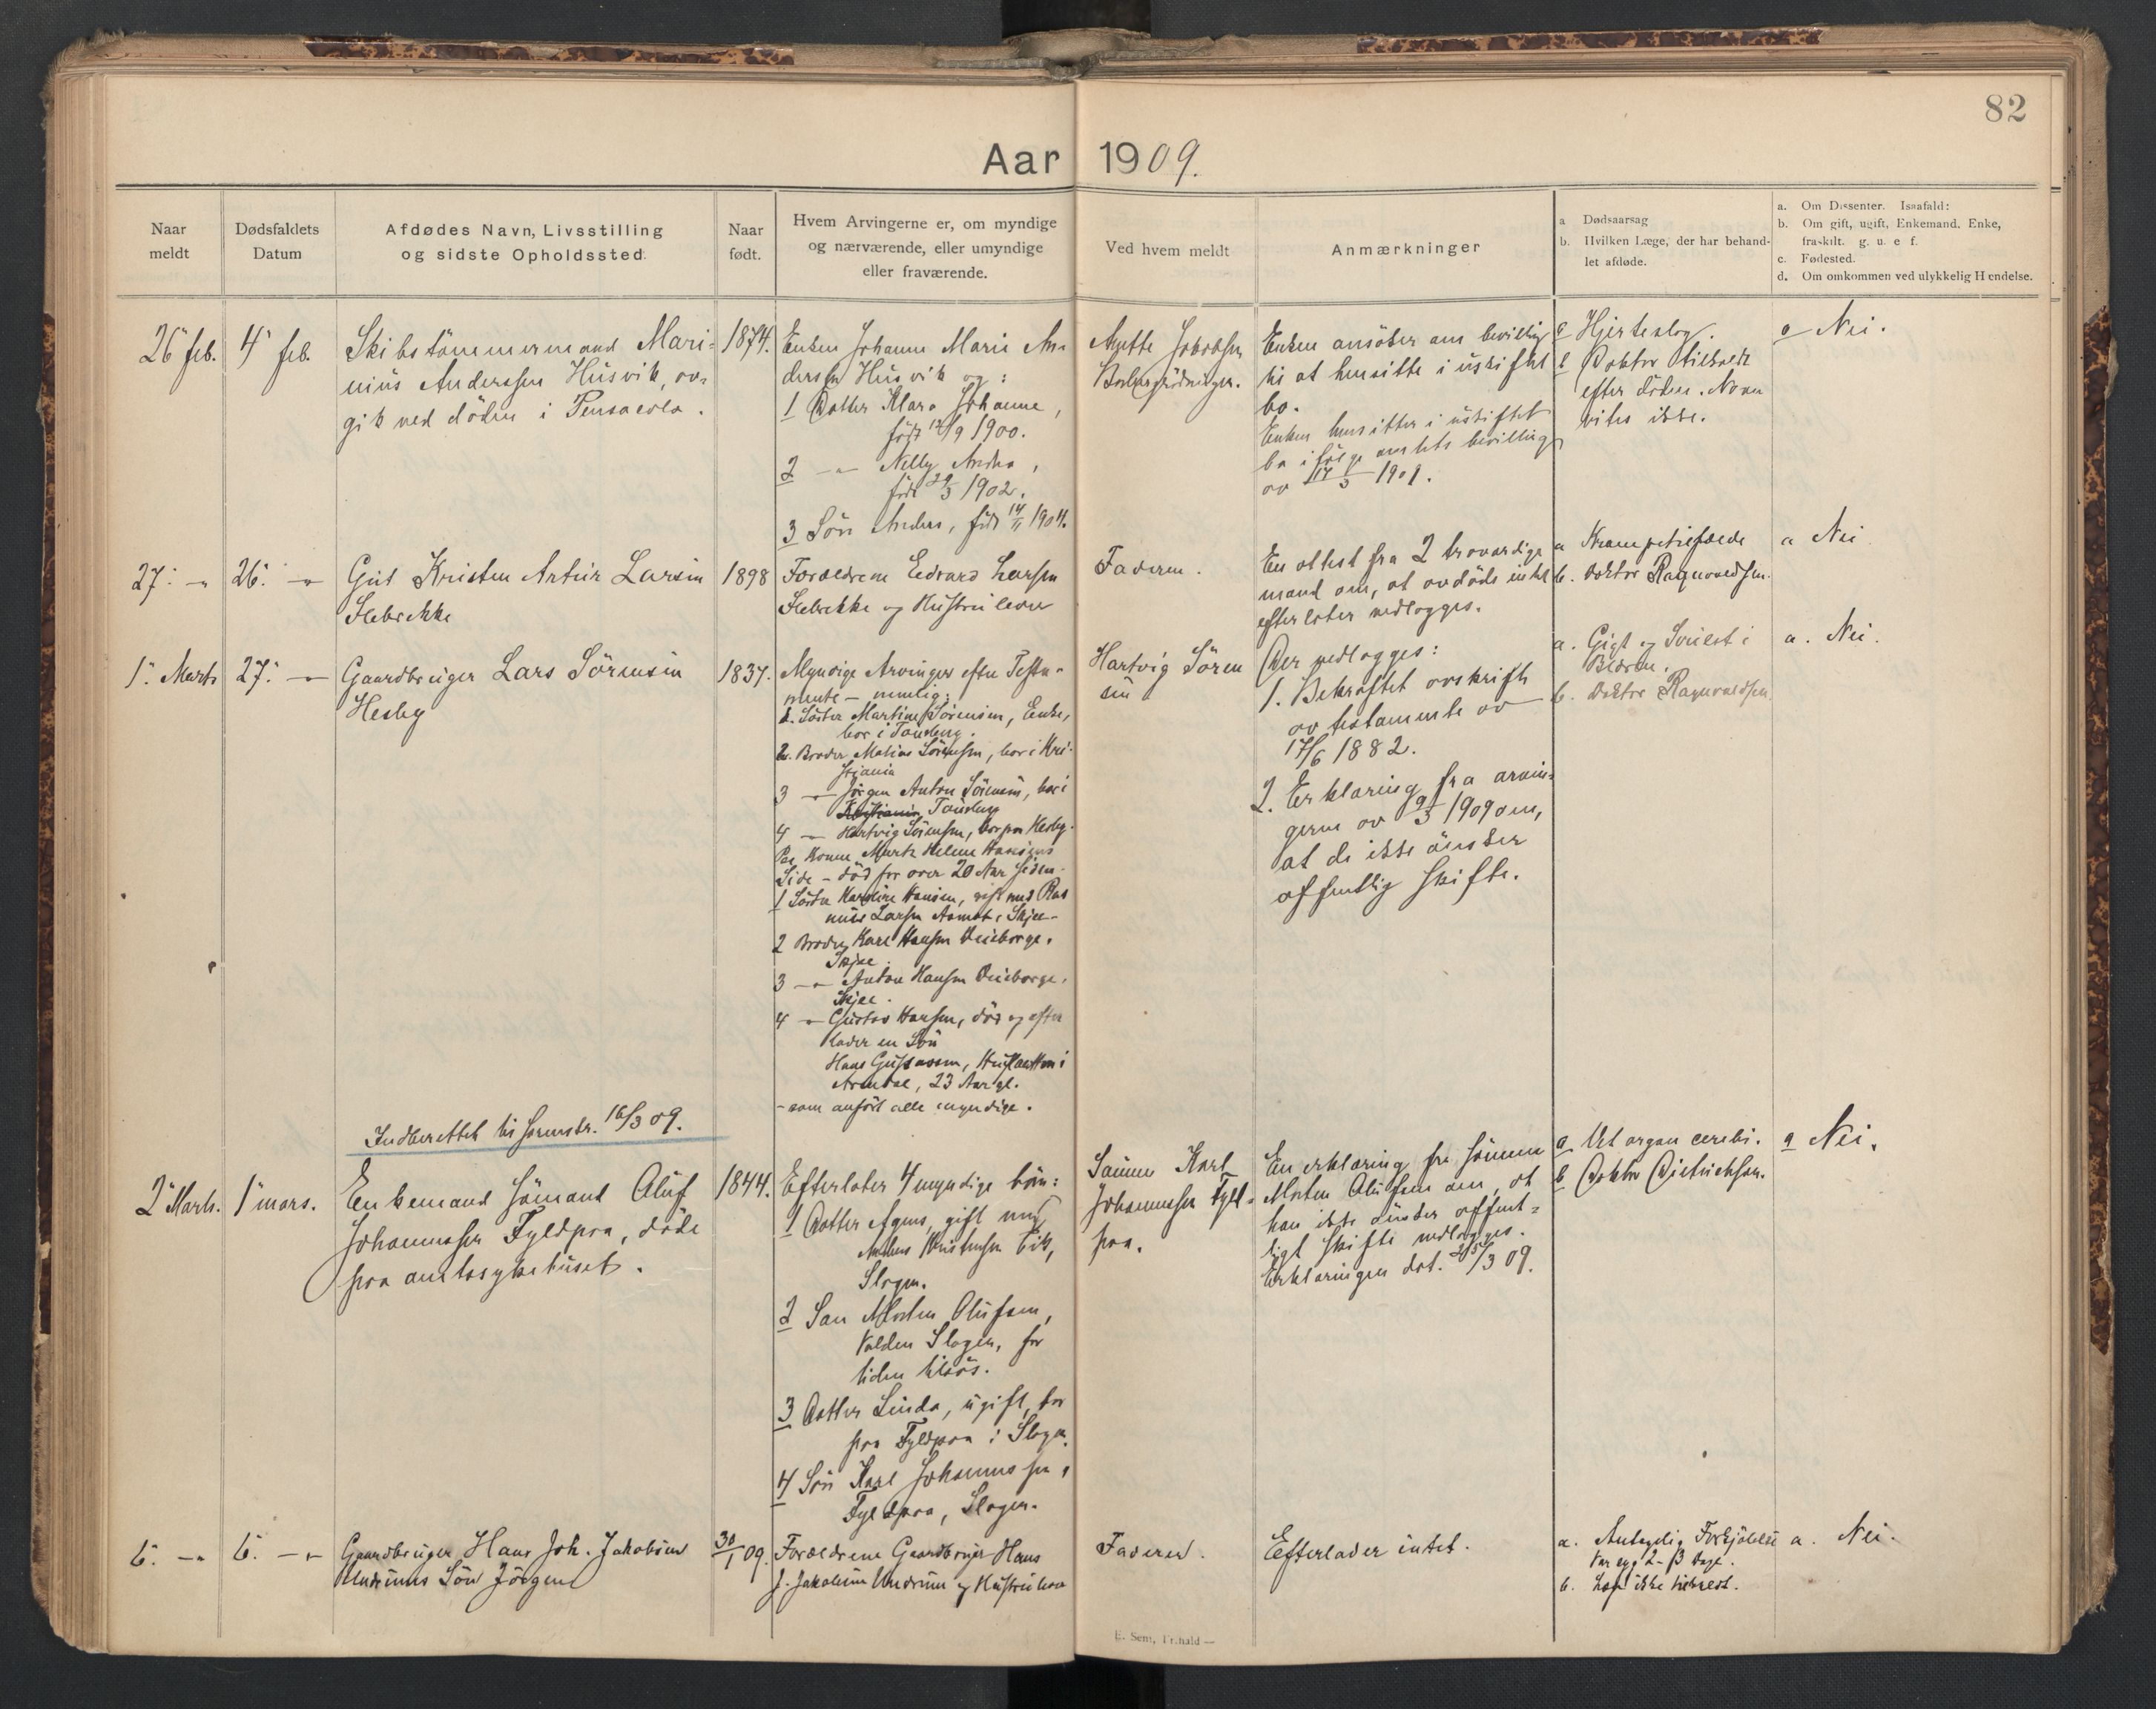 82
Aar 1909.
Naar
meldt
Dødsfaldets
Datum
Afdødes Navn, Livsstilling
og sidste Opholdssted
Naar
født.
Hvem Arvingerne er, om myndige
og nærværende, eller umyndige
eller fraværende.
Ved hvem meldt
Anmærkninger
a Dødsaarsag
b. Hvilken Læge, der har behand-
let afdøde.
a. Om Dissenter. Isaafald:
b. Om gift, ugift, Enkemand, Enke,
fraskilt. g. u. e f.
c. Fødested.
d. Om omkommen ved ulykkelig Hendelse.
26 feb.
4 feb.
Skibstømmermand Mari-
nius Anderssen Husvik, av-
gik ved døden i Pensacola.
1874.
Enken Johanne Marie An-
dersen Husvik og:
1 Datter Klara Johanne,
født 12/9 1900.
2 -"- Nelly Andrea,
født 29/3 1902.
3 Søn Anders, født 14/11 1904.
Mette Jakobsen
Enken ansøker om bevilling
til at hensitte i uskiftet
bo.
Enken hensitter i uskiftet
bo ifølge amtets bevilling
av 17/3 1909.
a Hjerteslag.
b Doktor tilkaldt
efter døden. Navn
vites ikke.
a Nei.
27. -"-
26. -"-
Gut Kristen Artur Larsen
Slebrekke
1898
Forældrene Edvard Larsen
Slebrekke og Hustru lever
Faderen.
En attest fra 2 troværdige
mænd om, at avdøde intet
efterlater vedlægges.
a Krampetilfælde
b. Doktor Ragnvaldsen.
a Nei
1. Marts
27. -"-
Gaardbruger Lars Sørensen
Hesby
1837.
Myndige Arvinger efter Testa-
mente - nemlig:
1. Søster Martine Sørensen, Enke,
bor i Tønsberg.
2. Broder Matias Sørensen, bor i Kri-
stiania
3 -"- Jørgen Anton Sørensen, bor i
Kristiania Tønsberg
4 -"- Hartvig Sørensen, bor paa Hesby.
Paa Konens Marte Helene Hansens
Side - død for over 20 Aar siden -
1 Søster Karoline Hansen, gift med Ras
mus Larsen Aamot, Skjee -
2 Broder Karl Hansen
Skjee.
3 -"- Anton Hansen
Skjee.
4 -"- Gustav Hansen, død og efter
lader en Søn
Hans Gustavsen, i
Arendal, 23 Aar gl.
- som anført alle myndige.
Hartvig Søren
sen
Der vedlægges:
1. Bekræftet avskrift
av testamente av
17/6 1882.
2. Erklæring fra arvin-
gerne av 9/3 1909 om,
at de ikke ønsker
offentlig skifte.
a. Gigt og Svulst i
Blæren.
b. Doktor Ragnvaldsen
a. Nei.
Indberettet til 16/3 09.
2 Marts.
1 mars.
Enkemand sømand Oluf
Johannessen Fyldpaa, døde
paa amtssykehuset.
1844.
Efterlater 4 myndige børn:
1 Datter Agnes, gift med
Anders Kristensen Eik,
Slagen.
2 Søn Morten Olufsen,
Valden Slagen, for
tiden tilsjøs.
3 Datter Linda, ugift, bor
paa Fyldpaa i Slagen.
4 Søn Karl Johannessen,
Fyldpaa, Slagen.
Sønnen Karl
Johannessen Fyld-
paa.
En erklæring fra sønnen
Morten Olufsen om, at
han ikke ønsker offent-
ligt skifte vedlægges.
Erklæringen dat. 25/3 09.
a Vit. organ. cerebri.
b Doktor Dietrichson.
a Nei.
6. -"-
6. -"-
Gaardbruger Hans Joh. Jakobsen
Undrums Søn Jørgen
30/1 09.
Forældrene Gaardbruger Hans
J. Jakobsen Undrum og Hustru lever
Faderen.
Efterlader intet.
a. Antagelig Forkjølelse
Var syg 2-3 Dage.
b. Læge ikke tilkaldt.
a. Nei.
E. Sem, Fr.hald —